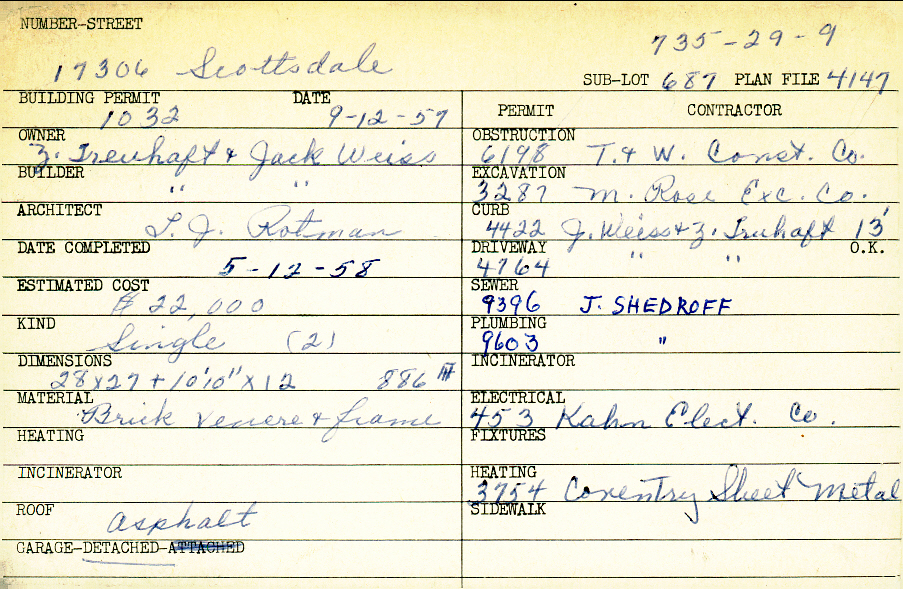 NUMBER-STREET
735-29-9
17306 Scottsdale
SUB-LOT 687 PLAN FILE 4147
BUILDING PERMIT DATE
1032 9-12-57
PERMIT CONTRACTOR
OWNER
Z. Treuhaft & Jack Weiss
BUILDER
" "
ARCHITECT
L. J. Rotman
DATE COMPLETED
5-12-58
ESTIMATED COST
$ 22,000
KIND
Single (2)
DIMENSIONS
28x27 + 10'10" x 12 886
MATERIAL
Brick venere & frame
HEATING
INCINERATOR
ROOF
asphalt
GARAGE-DETACHED-ATTACHED
OBSTRUCTION
6198 T. & W. Const. Co.
EXCAVATION
3287 M. Rose Exc. Co.
CURB
4422 J. Weiss & Z. Truhaft 13'
DRIVEWAY O.K.
4764 " "
SEWER
9396 J. SHEDROFF
PLUMBING
9603 "
INCINERATOR
ELECTRICAL
453 Kahn Elect. Co.
FIXTURES
HEATING
3754 Coventry Sheet Metal
SIDEWALK